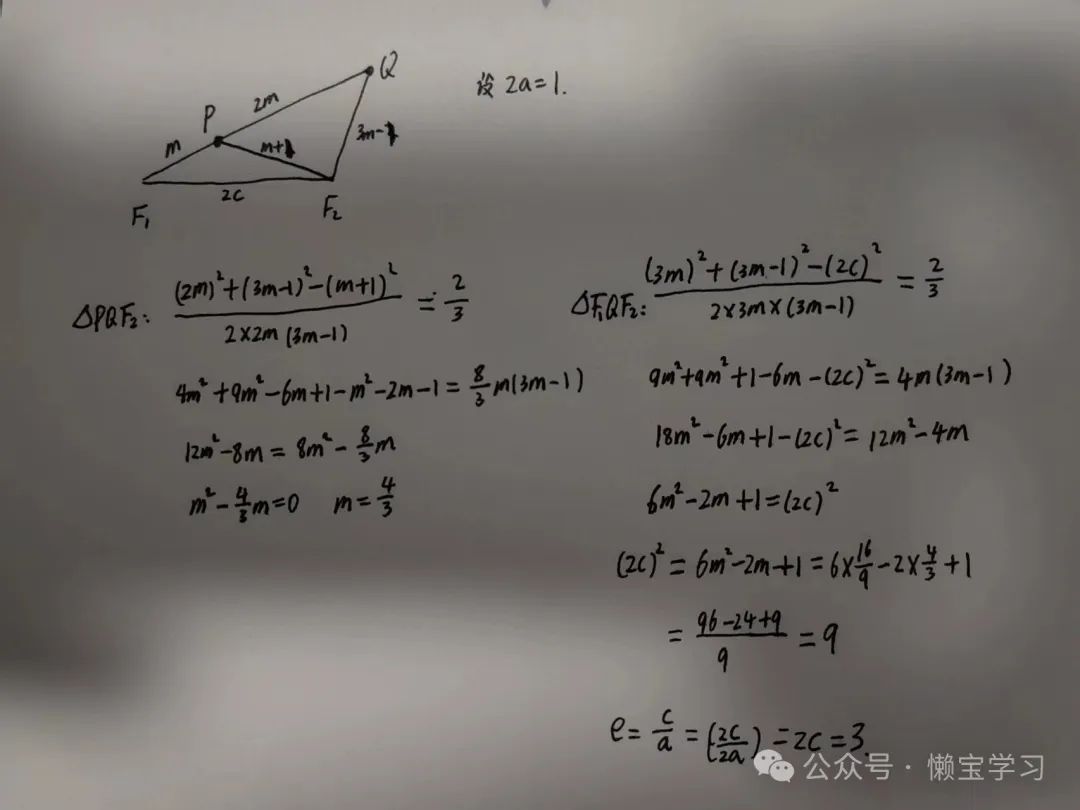 设 2a=1.
Q
2m
P
m
m+1
3m-1
2c
F₁
F₂
△PQF₂: \frac{(2m)^2+(3m-1)^2-(m+1)^2}{2×2m(3m-1)} = \frac{2}{3}
4m²+9m²-6m+1-m²-2m-1=\frac{8}{3}m(3m-1)
12m²-8m=8m²-\frac{8}{3}m
m²-\frac{4}{3}m=0 m=\frac{4}{3}
△F₁QF₂: \frac{(3m)^2+(3m-1)^2-(2c)^2}{2×3m×(3m-1)} = \frac{2}{3}
9m²+9m²+1-6m-(2c)²=4m(3m-1)
18m²-6m+1-(2c)²=12m²-4m
6m²-2m+1=(2c)²
(2c)²=6m²-2m+1=6×\frac{16}{9}-2×\frac{4}{3}+1
=\frac{96-24+9}{9}=9
e=\frac{c}{a}=(\frac{2c}{2a})=2c=3.
公众号·懒宝学习